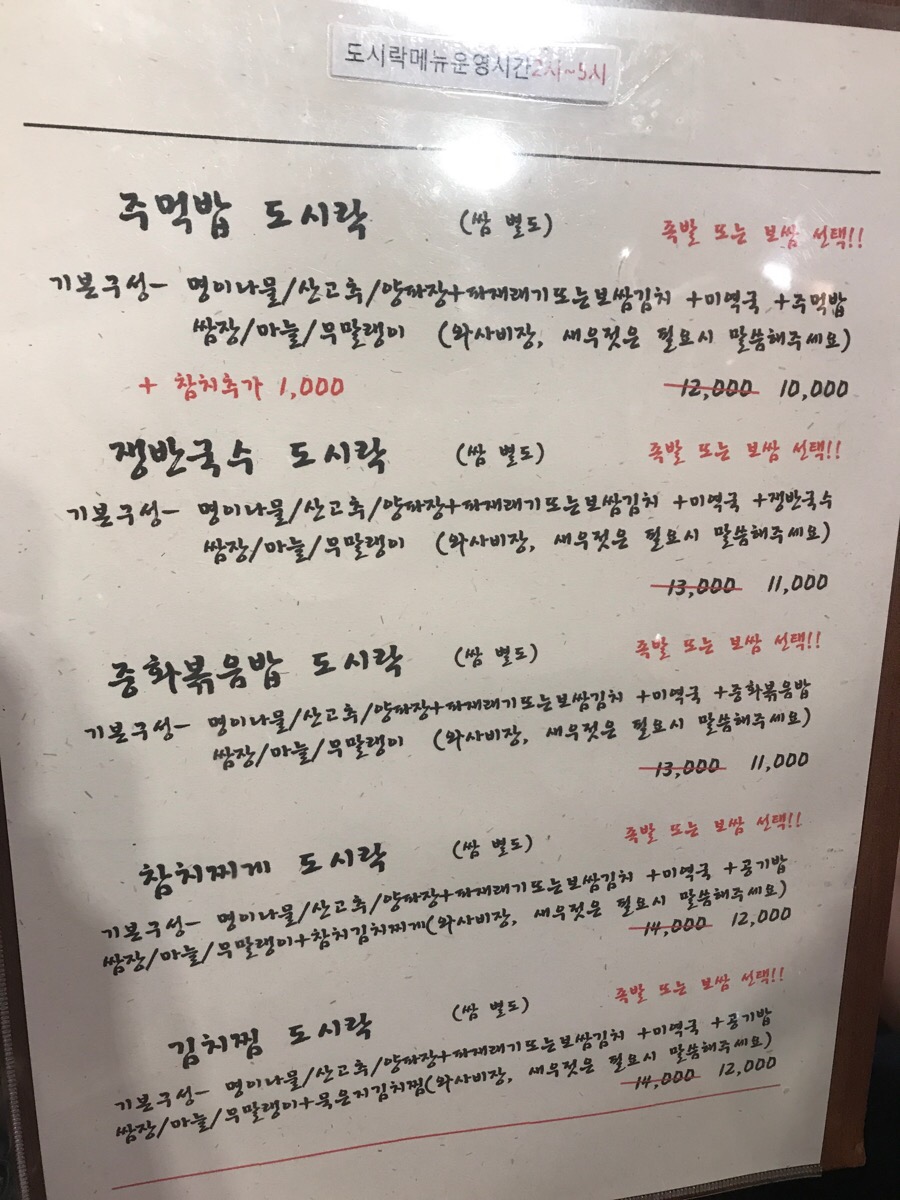 도시락메뉴운영시간2시~5시
주먹밥 도시락 (쌈 별도) 족발 또는 보쌈 선택!!
기본구성- 명이나물/산고추/양파장+파재래기또는보쌈김치 +미역국 +주먹밥
쌈장/마늘/무말랭이 (와사비장, 새우젓은 필요시 말씀해주세요)
+ 참치추가 1,000 12,000 10,000
쟁반국수 도시락 (쌈 별도) 족발 또는 보쌈 선택!!
기본구성- 명이나물/산고추/양파장+파재래기또는보쌈김치 +미역국 +쟁반국수
쌈장/마늘/무말랭이 (와사비장, 새우젓은 필요시 말씀해주세요)
13,000 11,000
중화볶음밥 도시락 (쌈 별도) 족발 또는 보쌈 선택!!
기본구성- 명이나물/산고추/양파장+파재래기또는보쌈김치 +미역국 +중화볶음밥
쌈장/마늘/무말랭이 (와사비장, 새우젓은 필요시 말씀해주세요)
13,000 11,000
참치찌게 도시락 (쌈 별도) 족발 또는 보쌈 선택!!
기본구성- 명이나물/산고추/양파장+파재래기또는보쌈김치 +미역국 +공기밥
쌈장/마늘/무말랭이+참치김치찌게(와사비장, 새우젓은 필요시 말씀해주세요)
14,000 12,000
김치찜 도시락 (쌈 별도) 족발 또는 보쌈 선택!!
기본구성- 명이나물/산고추/양파장+파재래기또는보쌈김치 +미역국 +공기밥
쌈장/마늘/무말랭이+묵은지김치찜(와사비장, 새우젓은 필요시 말씀해주세요)
14,000 12,000